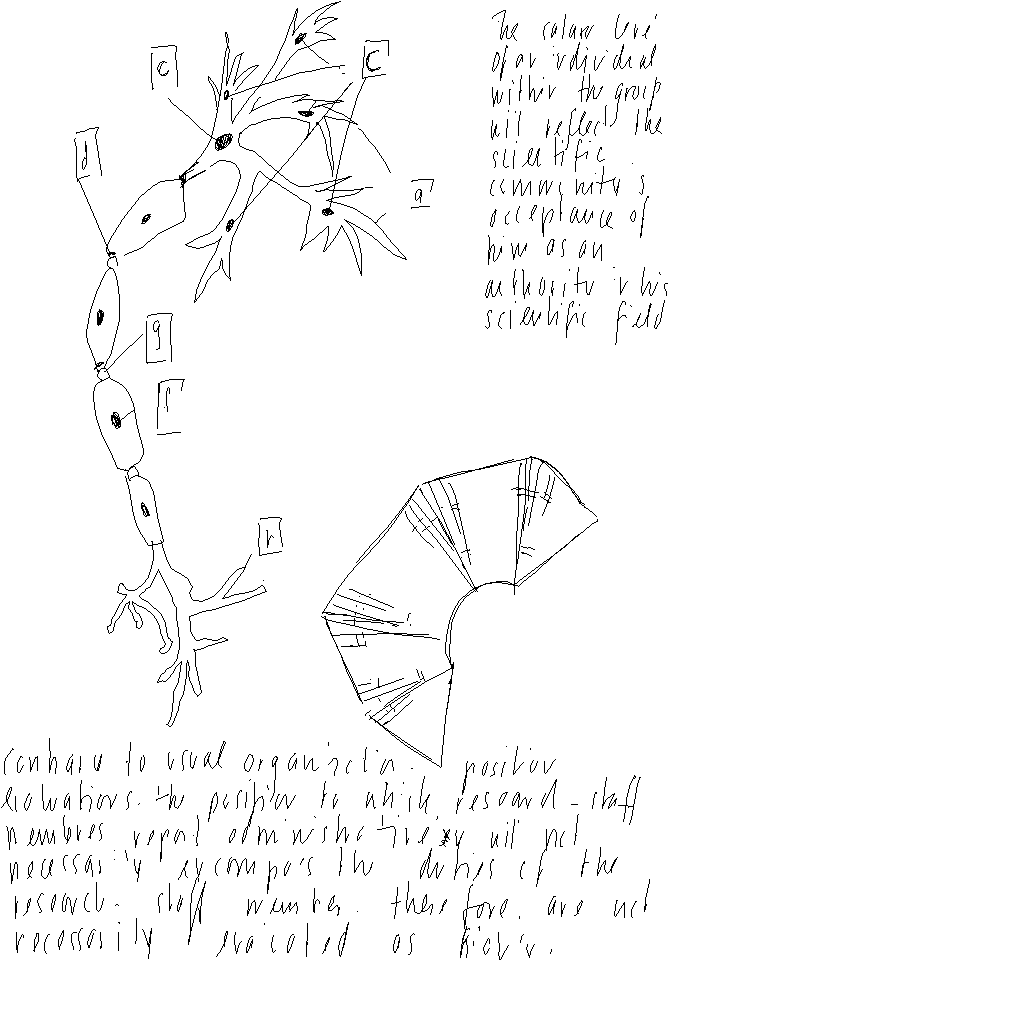 The salary level
of an individual
within the group
will reflect the
scientific
community's
acceptance of
him as an
authority in his
scientific field
c
C
d
a
g
f
h
Contrary to usual organization. position
evaluations. the position to which research-staff
members report administratively will not
necessarily encompass the duties of the
research-staff member. therefore, are not
necessarily evaluated as higher.